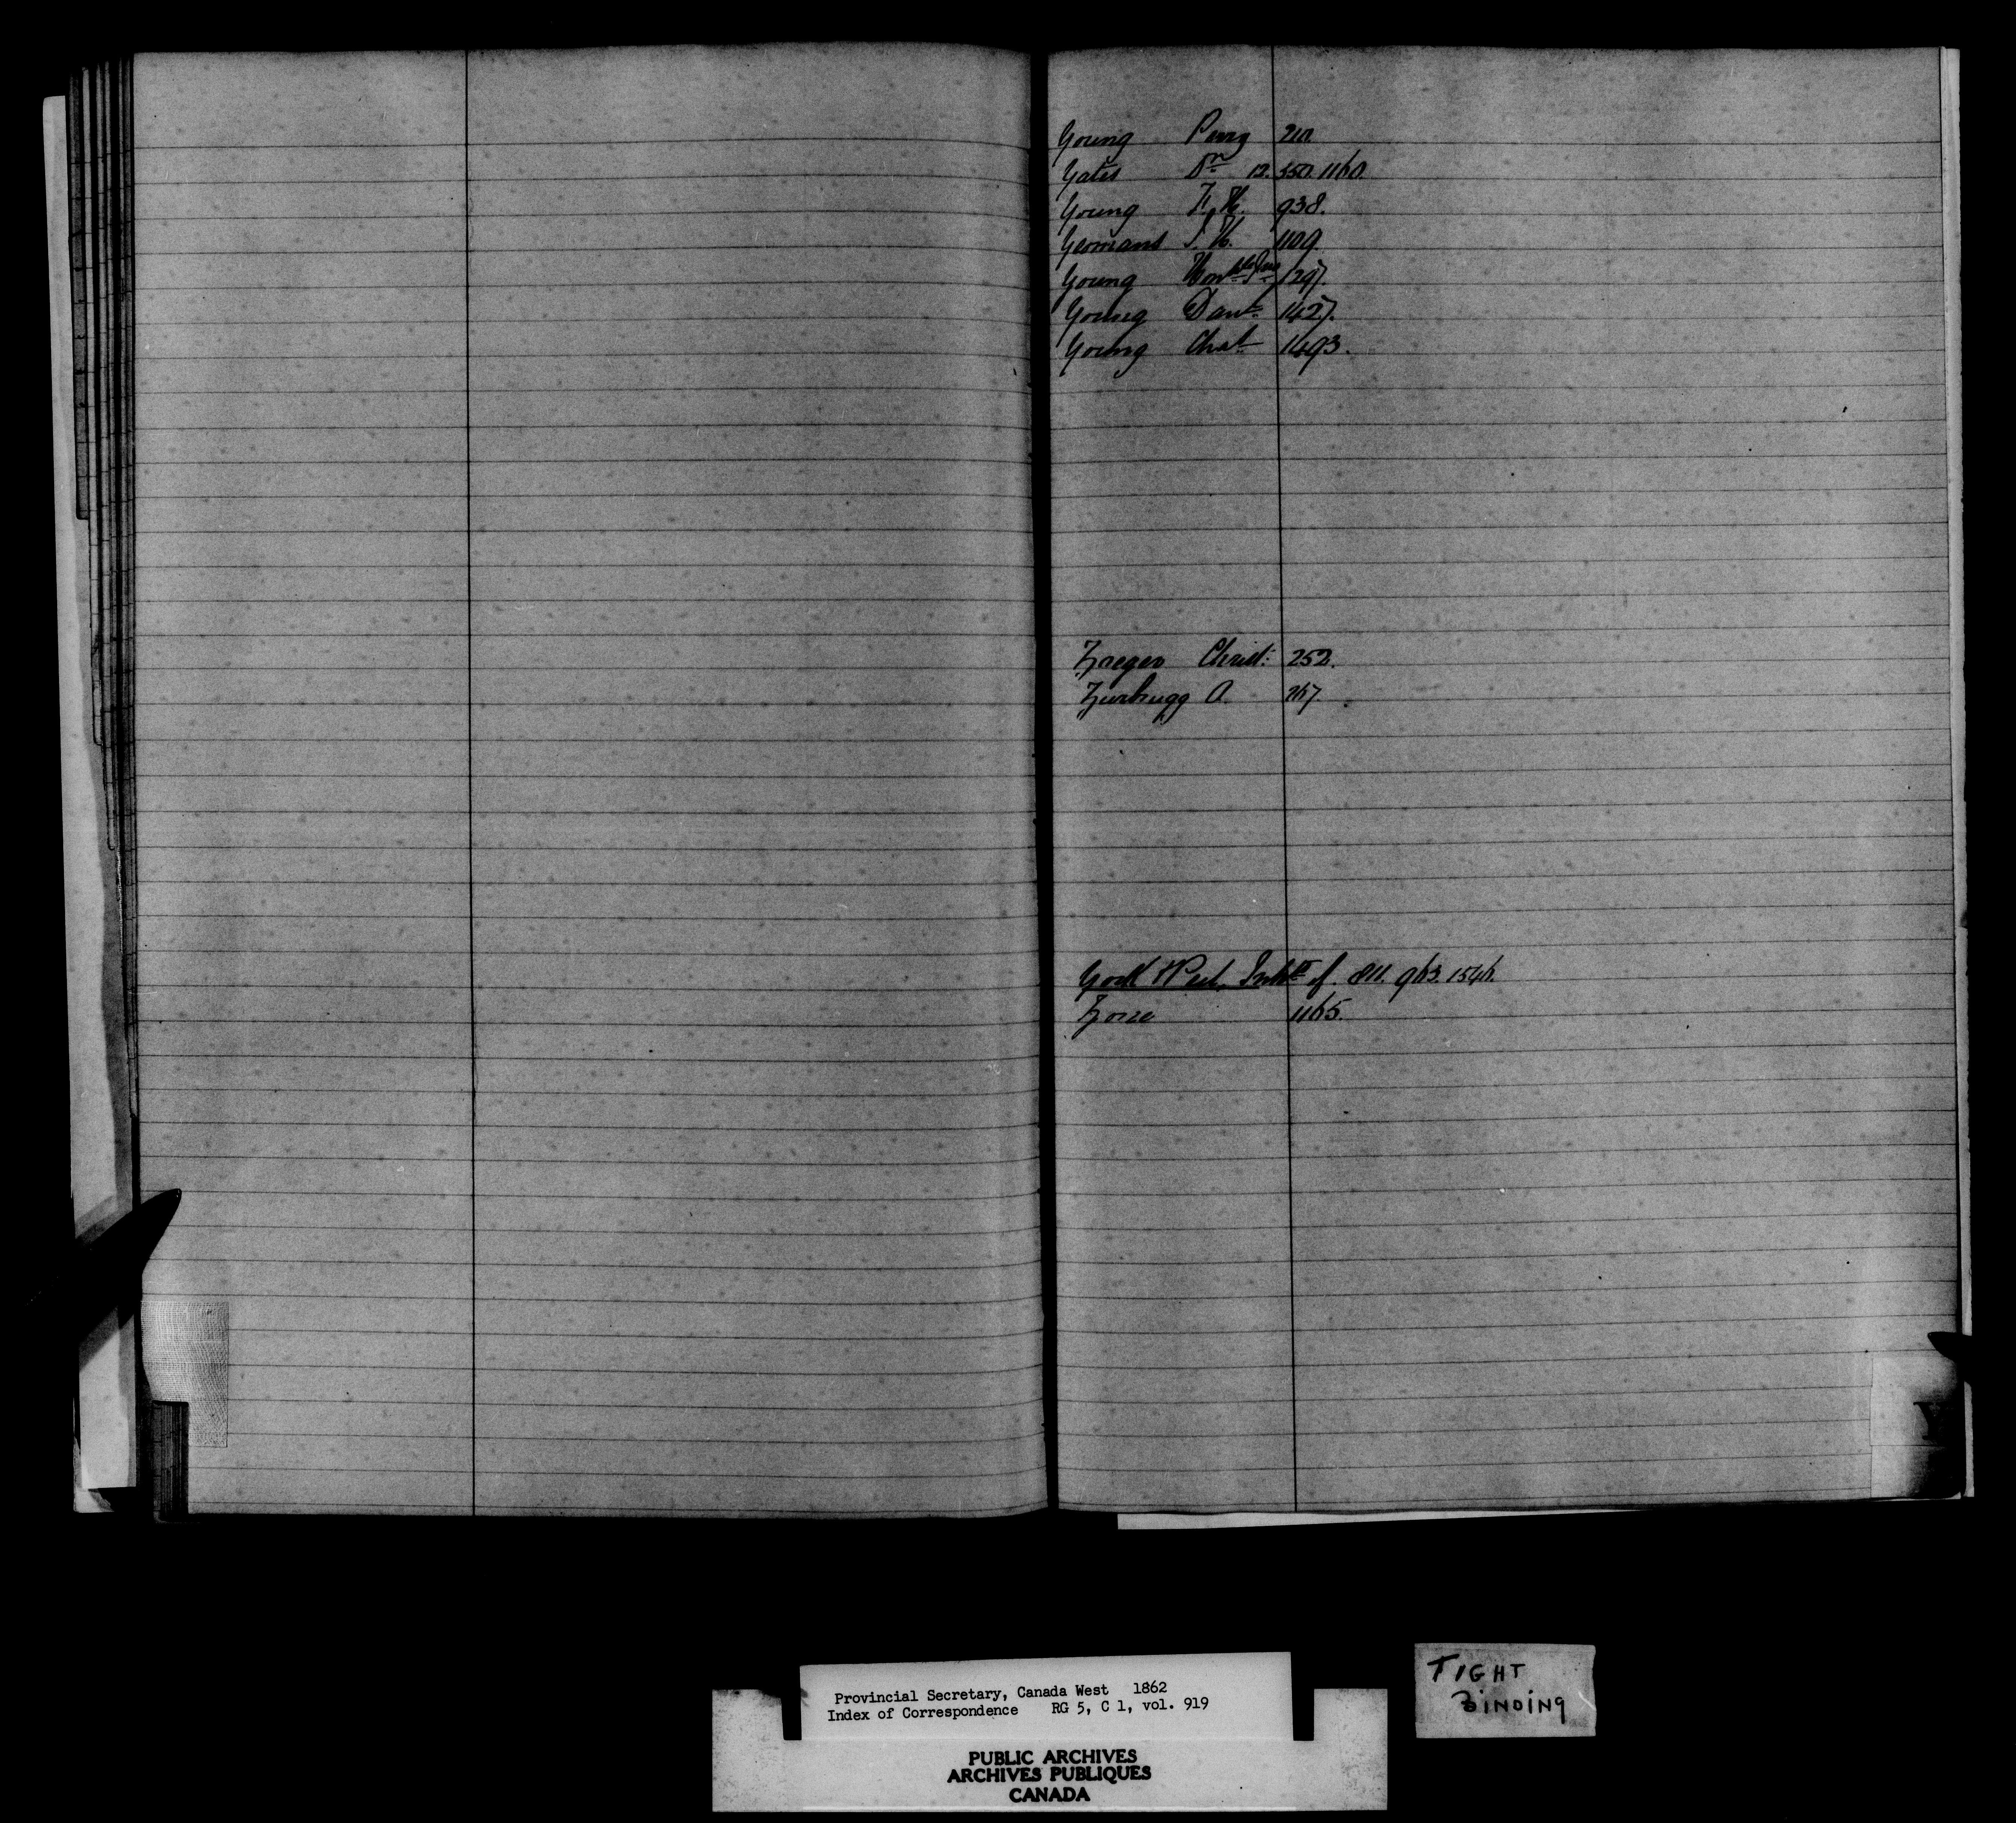 Young Percy 210.
Yates Dr 12. 550. 1160.
Young F. H. 938.
Yeomans S. H. 1109.
Young Honble Jno 1297.
Young Danl 1427.
Young Chas 1493.
Zaeger Christ: 252.
Zurbrugg A. 267.
York & Peel. Inhts of. 811. 963. 1546.
Zorra 1165.
Y
Provincial Secretary, Canada West 1862
Index of Correspondence RG 5, C 1, vol. 919
PUBLIC ARCHIVES
ARCHIVES PUBLIQUES
CANADA
TIGHT
BINDING